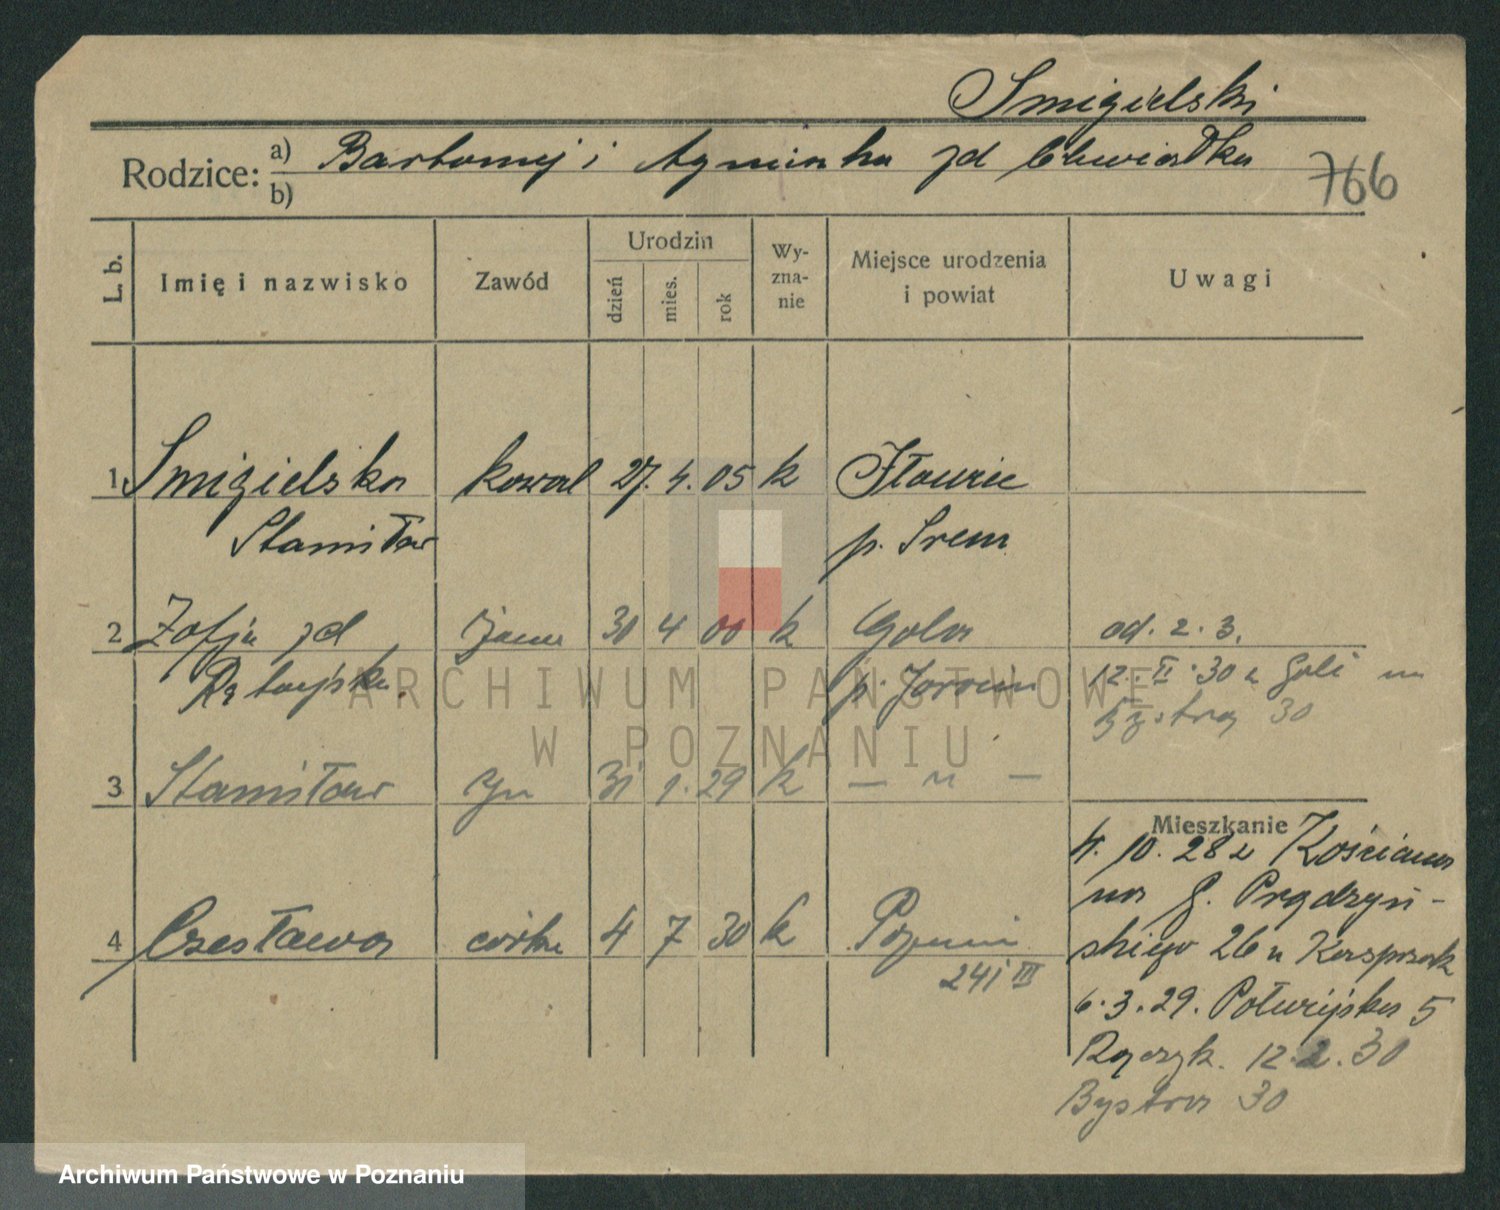 Smigielski
Rodzice: a) Bartomiej i Agnieszka zd Chwiałka
b)
766
L. b. Imię i nazwisko Zawód Urodzin dzień mies. rok Wy-zna-nie Miejsce urodzenia i powiat Uwagi
1 Smigielska kowal 27. 4. 05 k Iłowiec
Stanisław p. Srem
2 Zofja zd żona 30 4 00 k Gola od. 2. 3.
p. Jarocin 12. II. 30 z Goli na
Bystrą 30
3 Stanisław syn 31 1. 29 k — " —
Mieszkanie
4. 10. 28 z Kościana
na G. Prądzyń-
4 Czesława córka 4 7 30 k Poznań
skiego 26 u Kasprzak
241 III
6. 3. 29. Połwiejska 5
12. 2. 30
Bystra 30
ARCHIWUM PAŃSTWOWE
W POZNANIU
Archiwum Państwowe w Poznaniu